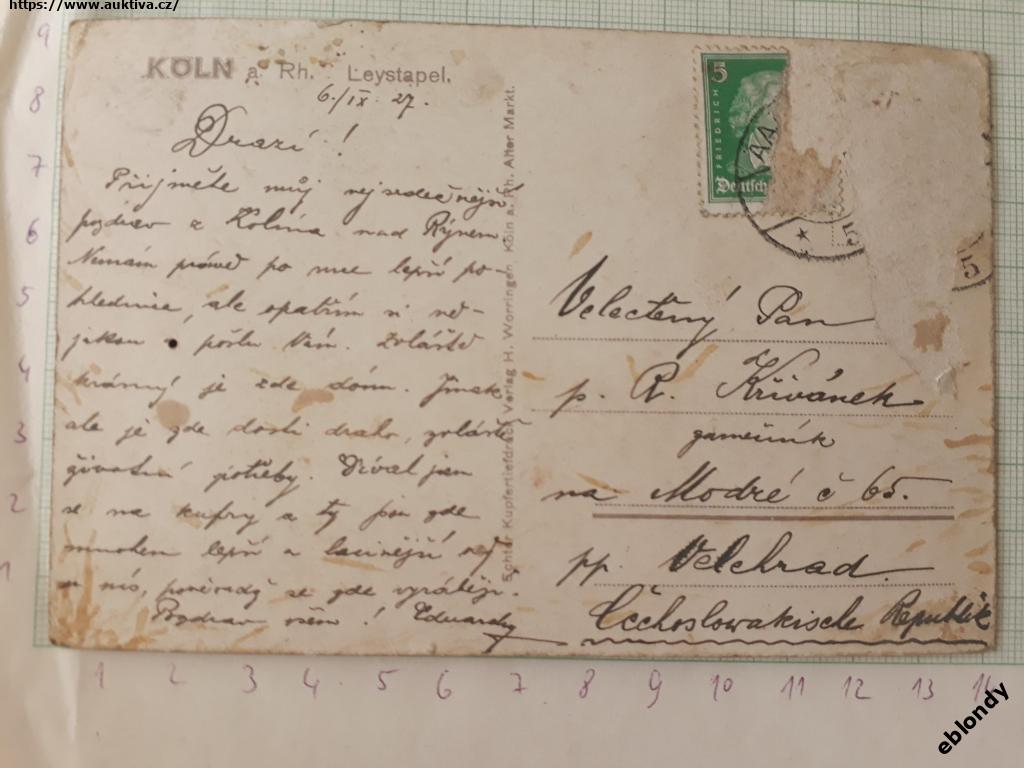 https://www.auktiva.cz/
KÖLN a. Rh. Leystapel.
6./IX 27.
Drazí!
Přijměte můj nejsrdečnější
pozdrav z Kolína nad Rýnem.
Nemám právě po ruce lepší po-
hlednice, ale opatřím si ně-
jakou a pošlu Vám. Zvláště
krásný je zde dóm. Jinak
ale je zde dosti draho, zvláště
životní potřeby. Díval jsem
se na kufry a ty jsou zde
mnohem lepší a lacinější než
u nás, poněvadž se zde vyrábějí.
Pozdrav všem! Eduard
Echter Kupfertiefdruck Verlag H. Worringen, Köln a. Rh. Alter Markt.
5
FRIEDRICH
Deutsch
AA
5
5
Velectěný Pan
p. R. Křivánek
na Modré č 65.
pp. Velehrad.
Čechoslowakische Republik
9
8
7
6
5
4
3
2
1
1 2 3 4 5 6 7 8 9 10 11 12 13 14
eblondy